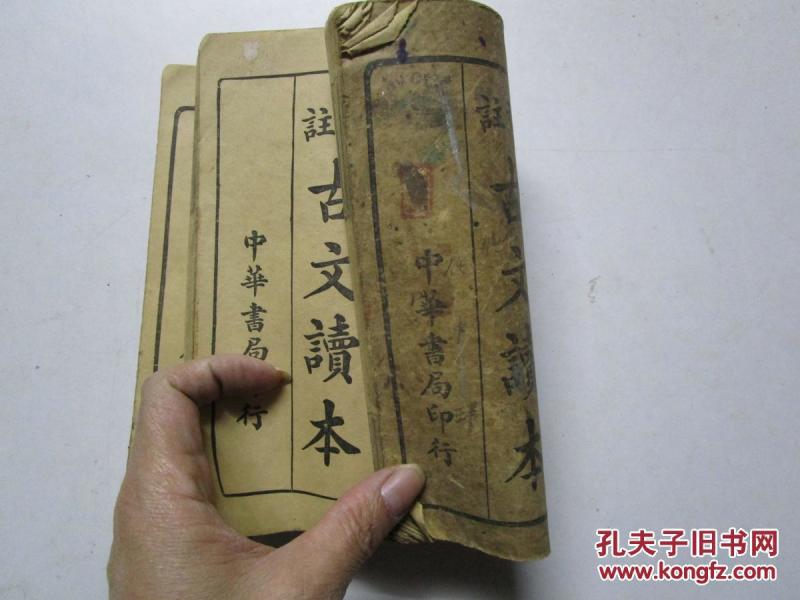 註
古文讀本
中華書局印行
註
古文讀本
中華書局印行
孔夫子旧书网
www.kongfz.com